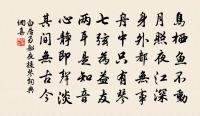 鳥栖魚不動
月照夜江深
身外都無事
舟中只有琴
七弦為益友
兩耳是知音
心静即聲淡
其間無古今
白居易船夜援琴詞典
網